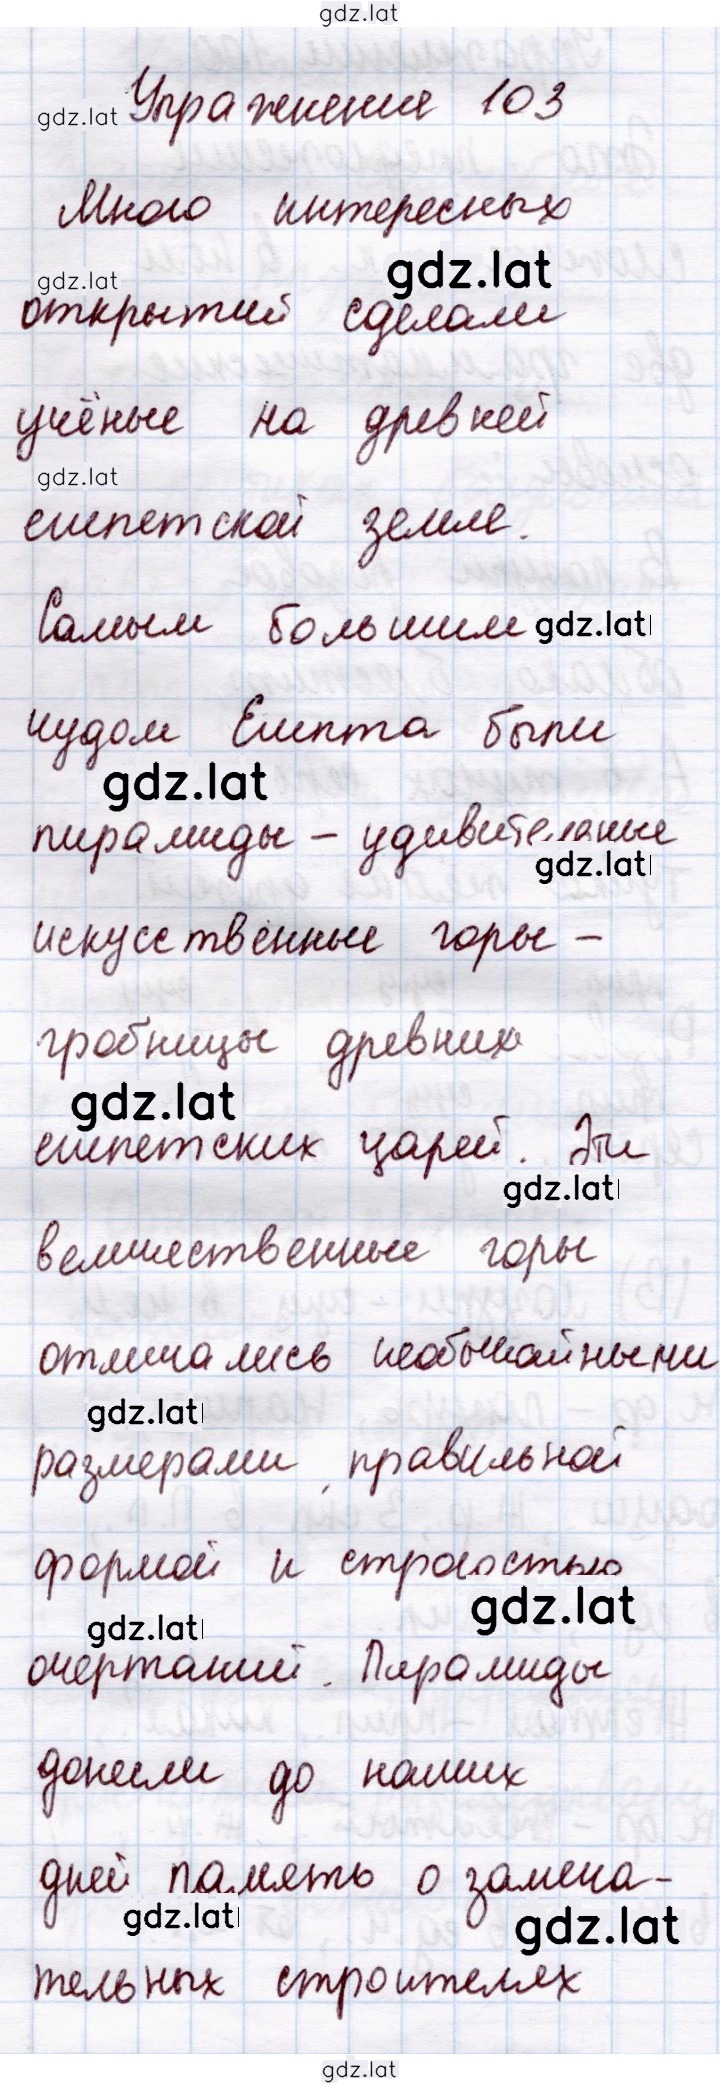 gdz.lat
Упражнение 103
gdz.lat
Много интересных
gdz.lat
gdz.lat
открытий сделали
учёные на древней
gdz.lat
египетской земле.
Самым большим
gdz.lat
чудом Египта были
gdz.lat
пирамиды – удивительные
gdz.lat
искусственные горы –
гробницы древних
gdz.lat
египетских царей. Эти
gdz.lat
величественные горы
отличались необычайными
gdz.lat
размерами, правильной
формой и строгостью
gdz.lat
gdz.lat
очертаний. Пирамиды
донесли до наших
дней память о замеча-
gdz.lat
gdz.lat
тельных строителях
gdz.lat